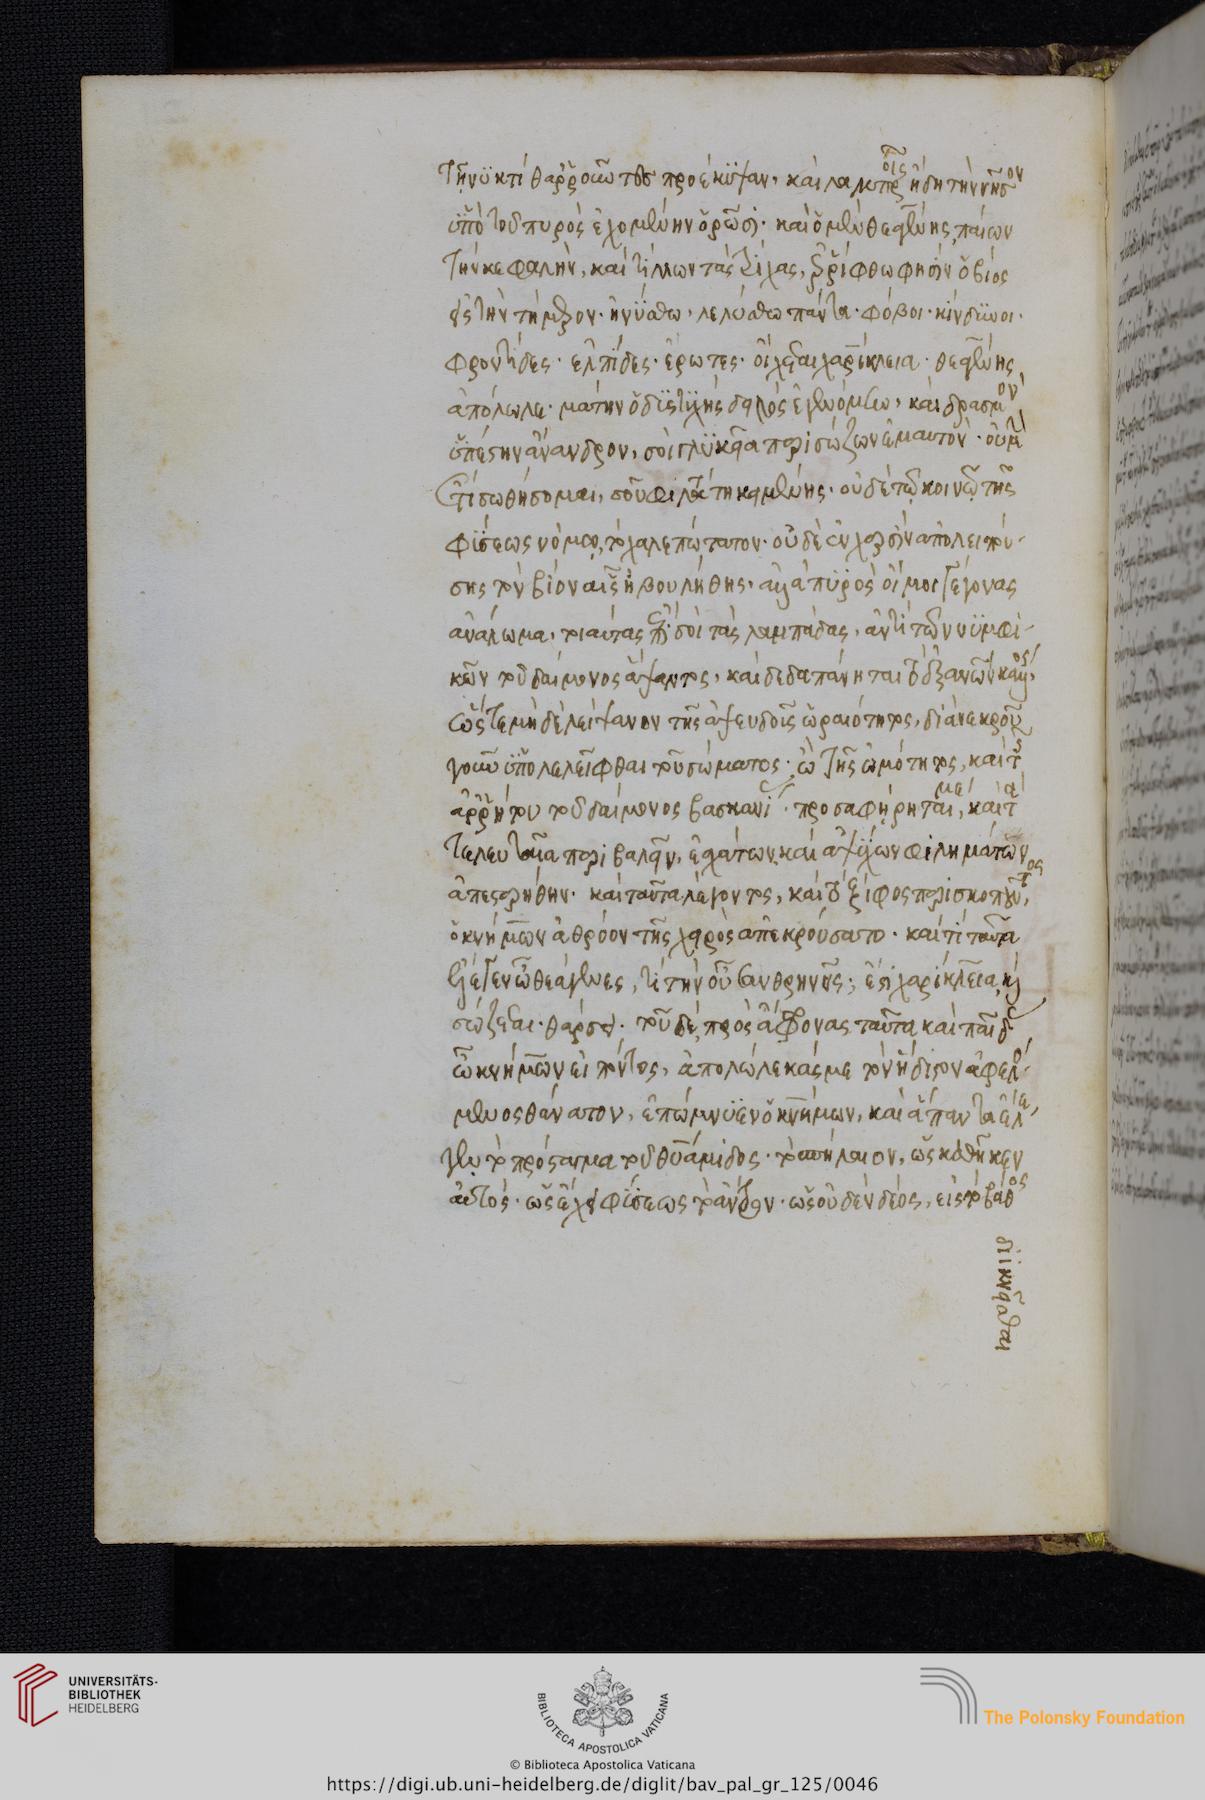 τῇ νυκτὶ θαρροῦντες προέκυψαν, καὶ λαμπροῖς ἤδη τὴν νῆσον
ὑπὸ τοῦ πυρὸς ἐχομένην ὁρῶσι· καὶ ὁ μὲν θεαγένης, παίων
τὴν κεφαλὴν, καὶ τίλλων τὰς τρίχας, ἐρρίφθω φησὶν ὁ βίος
ἐς τὴν τήμερον· ἠνύσθω, λελύσθω πάντα· φόβοι· κίνδυνοι·
φροντίδες· ἐλπίδες· ἔρωτες· οἴχεται χαρίκλεια· θεαγένης
ἀπόλωλε· μάτην ὁ δυστυχὴς δειλὸς ἐγενόμην, καὶ δρασμὸν
ὑπέστην ἄνανδρον, σοὶ γλυκεῖα περισώζων ἐμαυτὸν· οὐ μὴν
ἔτι σωθήσομαι, σοῦ φιλτάτη κειμένης· οὐδὲ τῷ κοινῷ τῆς
φύσεως νόμῳ, τὸ χαλεπώτατον· οὐδὲ ἐν χερσὶν ἀπολειπού-
σης τὸν βίον αἷς ἠβουλήθης, ἀλλὰ πυρὸς οἴμοι γέγονας
ἀνάλωμα, τοιαύτας ἐπὶ σοὶ τὰς λαμπάδας, ἀντὶ τῶν νυμφι-
κῶν τοῦ δαίμονος ἅψαντος, καὶ δεδαπάνηται τὸ ἐξ ἀνθρώπων κάλλος,
ὥστε μὴ δὲ λείψανον τῆς ἀψευδοῦς ὡραιότητος, διὰ νεκροῦ
γοῦν ὑπολελεῖφθαι τοῦ σώματος· ὢ τῆς ὠμότητος, καὶ τῆς
ἀρρήτου τοῦ δαίμονος βασκανίας· προσαφήρηταί με, καὶ τὰ
τελευταῖα περιβαλεῖν, ἐσχάτων καὶ ἀψύχων φιλημάτων
ἀπεστερήθην· καὶ ταῦτα λέγοντος, καὶ τὸ ξίφος περισκοποῦντος,
ὁ κνήμων ἀθρόον τῆς χειρὸς ἀπεκρούσατο· καὶ τί ταῦτα
ἔλεγεν ὦ θεάγενες, τί τὴν οὖσαν θρηνεῖς; ἔστι χαρίκλεια, καὶ
σώζεται· θάρσει· τοῦ δὲ, πρὸς ἄφρονας ταῦτα καὶ παῖδας
ὦ κνήμων εἰπόντος, ἀπολώλεκάς με τὸν ἥδιστον ἀφελό-
μενος θάνατον, ἐπώμνυεν ὁ κνήμων, καὶ ἅπαντα ἔλε-
γε, τὸ πρόσταγμα τοῦ θυάμιδος· τὸ σπήλαιον, ὡς καθῆκεν
αὐτὸς· ὡς ἔχει φύσεως τὸ ἄντρον· ὡς οὐδὲν δέος, εἰς τὸ βάθος
διικνεῖσθαι
UNIVERSITÄTS-
BIBLIOTHEK
HEIDELBERG
BIBLIOTECA APOSTOLICA VATICANA
The Polonsky Foundation
© Biblioteca Apostolica Vaticana
https://digi.ub.uni-heidelberg.de/diglit/bav_pal_gr_125/0046